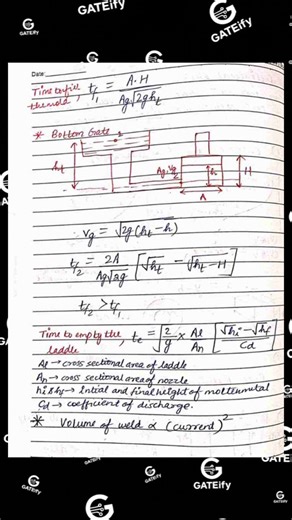 GATEify
Date:
Time to fill the mold, tf1 = A.H / Ag√2ght
* Bottom Gate
ht
Ag, Vg
h
H
A
Vg = √2g(ht-h)
tf2 = 2A / Ag√2g [√ht - √ht-H]
tf2 > tf1
Time to empty the ladle, te = √2/g × Al/An [√hi - √hf / Cd]
Al → cross sectional area of ladle
An → cross sectional area of nozzle
hi & hf → Intial and final height of molten metal
Cd → coefficient of discharge.
* Volume of weld ∝ (current)²
GATEify